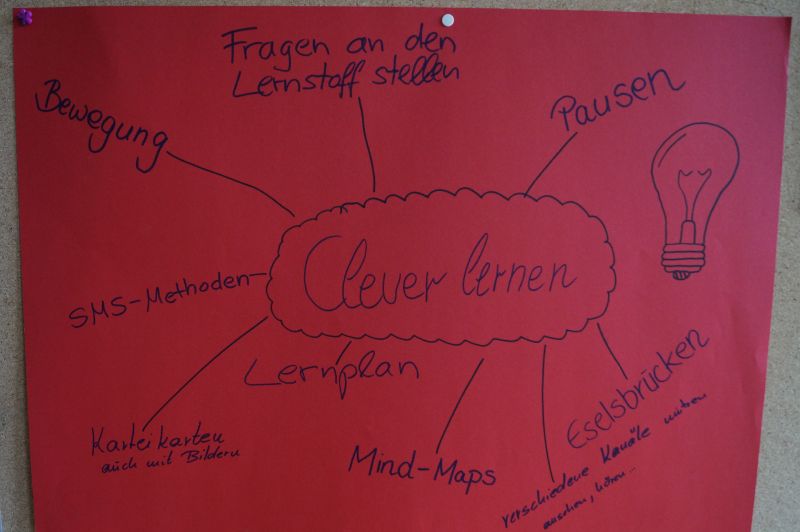 Fragen an den
Lernstoff stellen
Bewegung
Pausen
Clever lernen
SMS-Methoden
Lernplan
Eselsbrücken
Karteikarten
auch mit Bildern
Mind-Maps
verschiedene Kanäle nutzen
ansehen, hören...